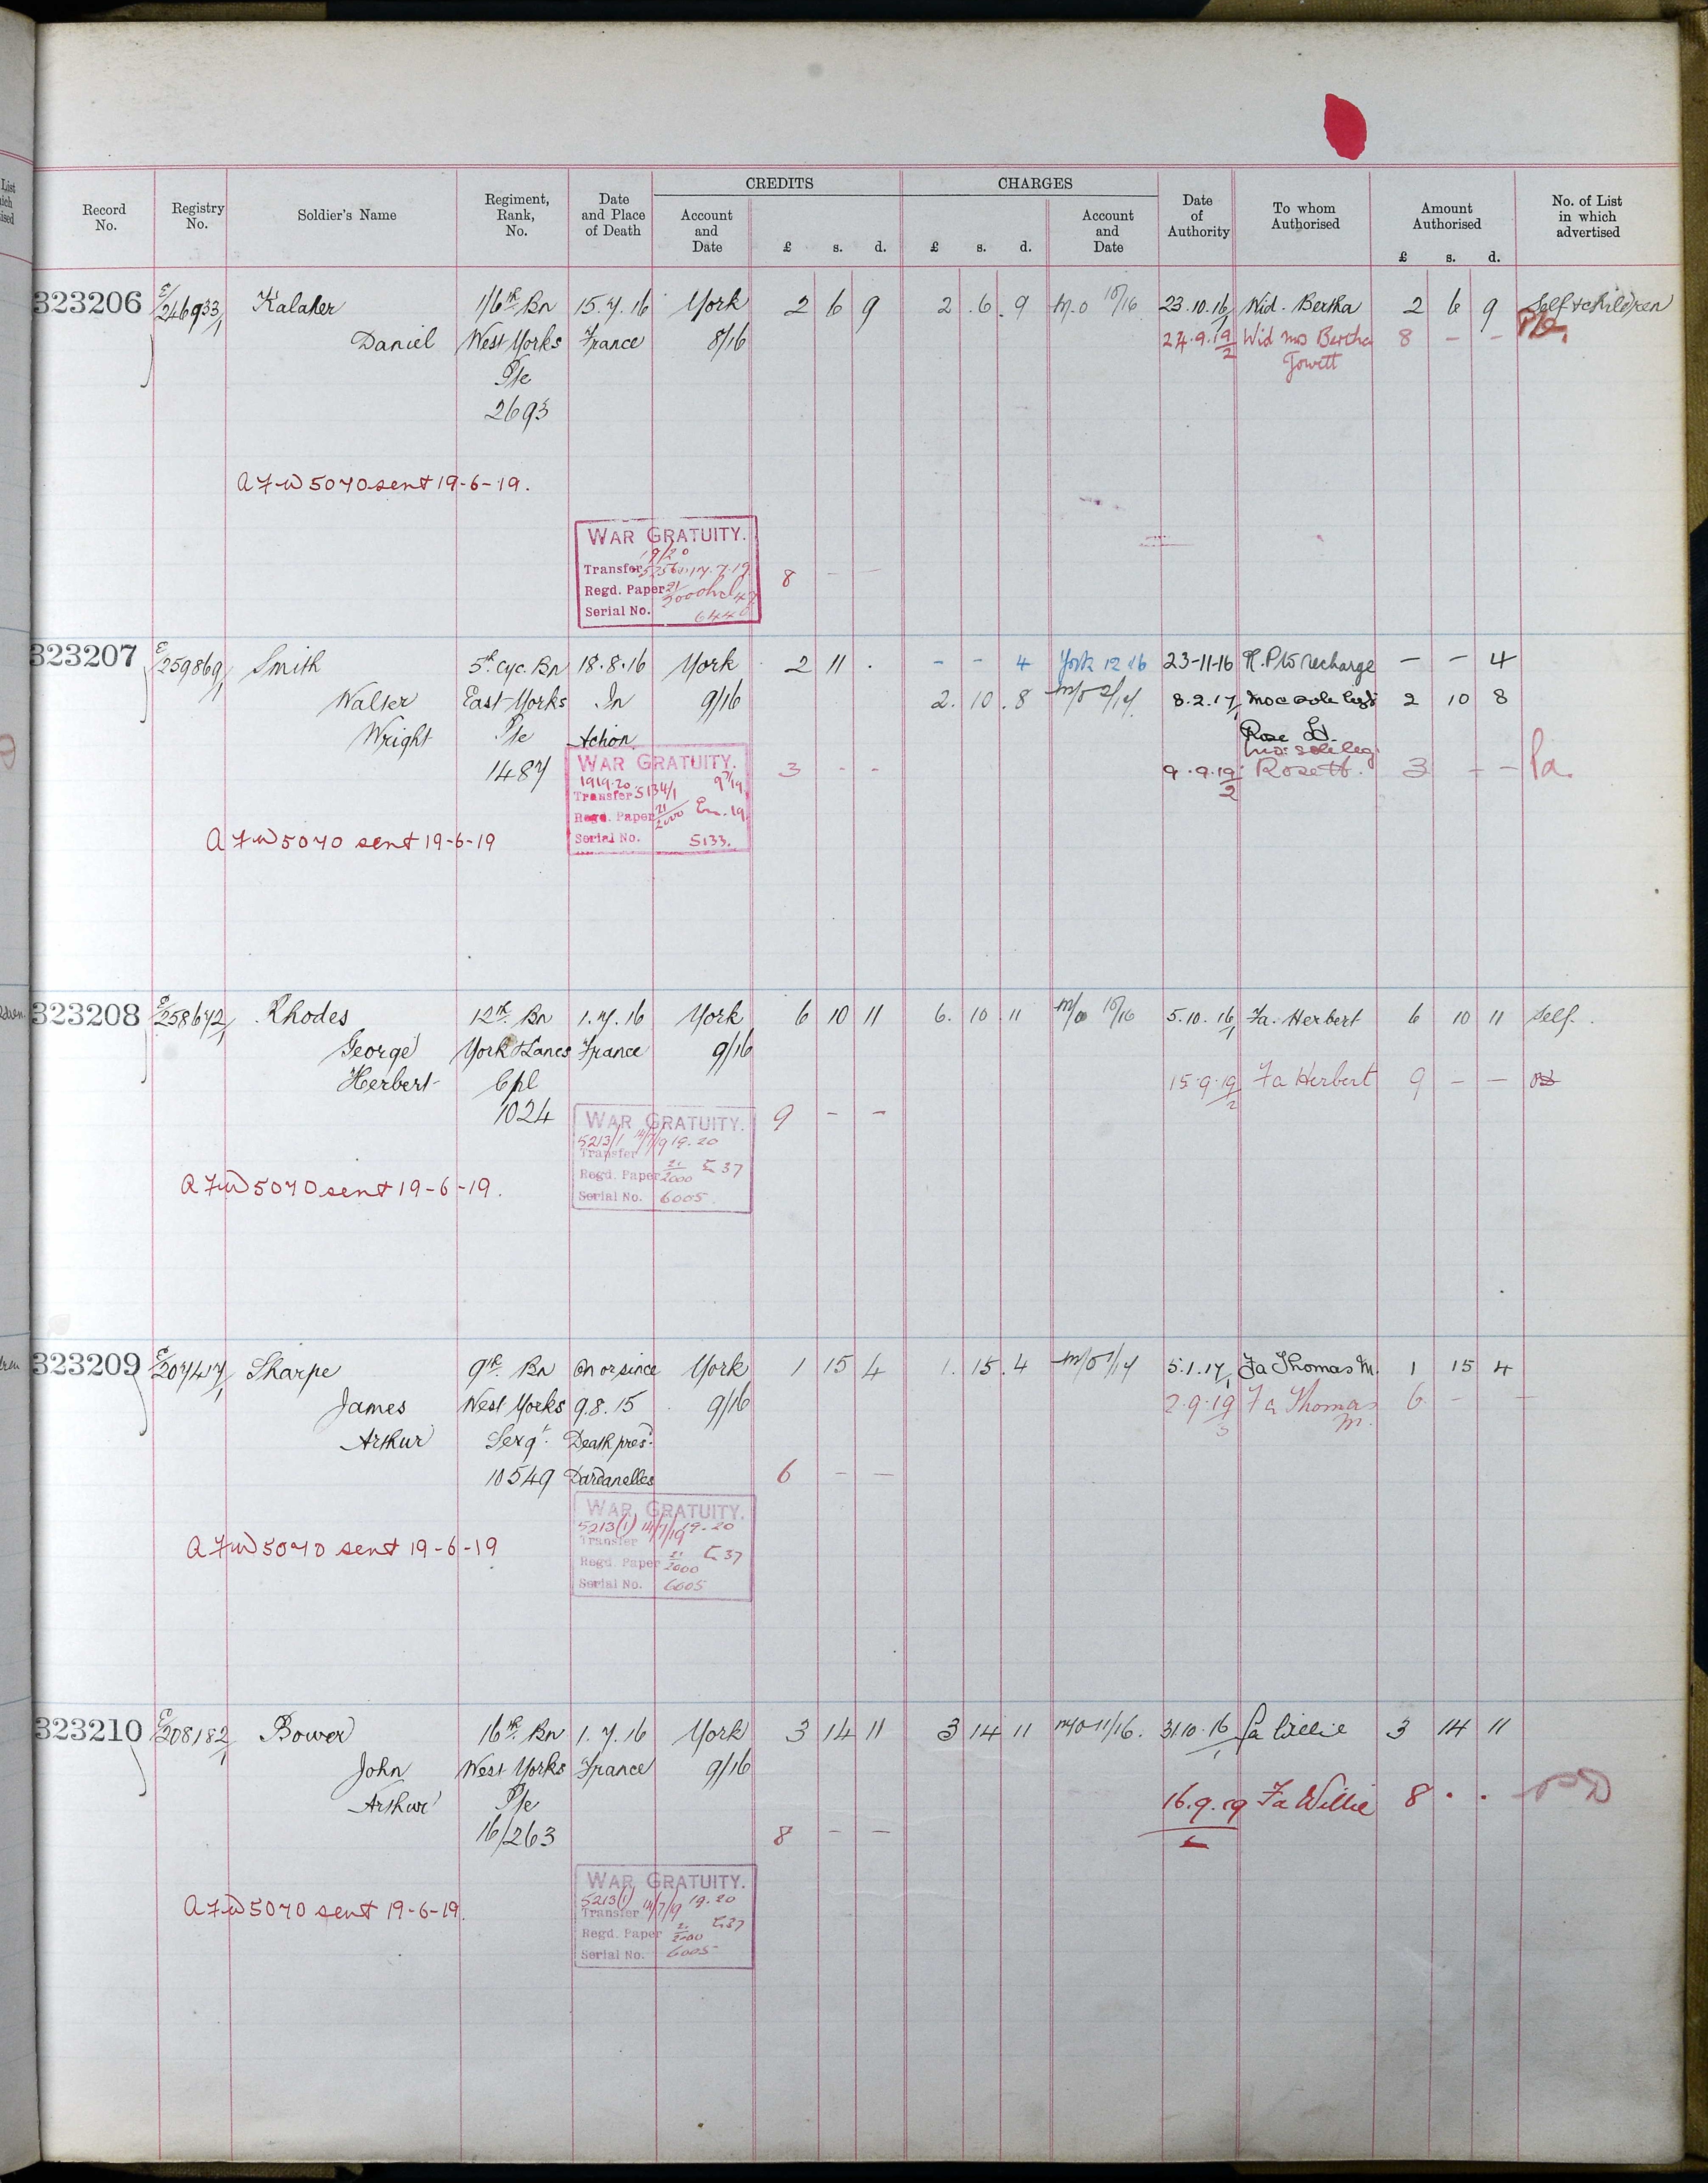 CREDITS CHARGES
Record No. Registry No. Soldier's Name Regiment, Rank, No. Date and Place of Death Account and Date £ s. d. £ s. d. Account and Date Date of Authority To whom Authorised Amount Authorised £ s. d. No. of List in which advertised
323206 E/246933/1 Kalaher 1/6th Bn 15.7.16 York 2 6 9 2 . 6 . 9 M.O 10/16 23.10.16/1 Wid. Bertha 2 6 9 Self & children
Daniel West Yorks France 8/16 24.9.19/2 Wid Mrs Bertha 8 - -
Pte Jowett
2693
A F W 5070 sent 19-6-19.
WAR GRATUITY.
19/20
Transfer 17.7.19 8 - -
Regd. Paper 21/2000
Serial No. 6446
323207 E/259869/1 Smith 5th Cyc. Bn 18.8.16 York 2 11 . - - 4 York 12 16 23-11-16 R.P. to recharge - - 4
Walter East Yorks In 9/16 2. 10 . 8 M/O 2/17 8.2.17/1 Mo & sole leg: 2 10 8
Wright Pte Action Rose
1487 Mo: sole leg
WAR GRATUITY. 3 - - 9.9.19/2 Rose 3 - - Pa.
1919.20 9/7/19
Transfer 5134/1
Regd. Paper 21/2000 En. 19
Serial No. 5133.
A F W 5070 sent 19-6-19
323208 E/258672/1 Rhodes 12th Bn 1.7.16 York 6 10 11 6. 10 . 11 M/O 10/16 5.10.16/1 Fa. Herbert 6 10 11 Self.
George York & Lancs France 9/16
Herbert Cpl 15.9.19/2 Fa Herbert 9 - -
1024
WAR GRATUITY. 9 - -
5213/1 14/7/19 19.20
Transfer
Regd. Paper 21/2000 E 37
Serial No. 6005.
A F W 5070 sent 19-6-19.
323209 E/207417/1 Sharpe 9th Bn On or since York 1 15 4 1. 15 . 4 M/O 1/17 5.1.17/1 Fa Thomas M. 1 15 4
James West Yorks 9.8.15 9/16 2.9.19/3 Fa Thomas M. 6 - -
Arthur Sergt. Death pres:
10549 Dardanelles 6 - -
WAR GRATUITY.
5213(1) 14/7/19 19-20
Transfer
Regd. Paper 21/2000 E 37
Serial No. 6005
A F W 5070 sent 19-6-19
323210 E/208182/1 Bower 16th Bn 1.7.16 York 3 14 11 3 14 11 M/O 11/16. 31.10.16/1 Fa Willie 3 14 11
John West Yorks France 9/16
Arthur Pte 16.9.19 Fa Willie 8 . .
16/263 8 - -
WAR GRATUITY.
5213(1) 14/7/19 19.20
Transfer
Regd. Paper 21/2000 E 37
Serial No. 6005
A F W 5070 sent 19-6-19.